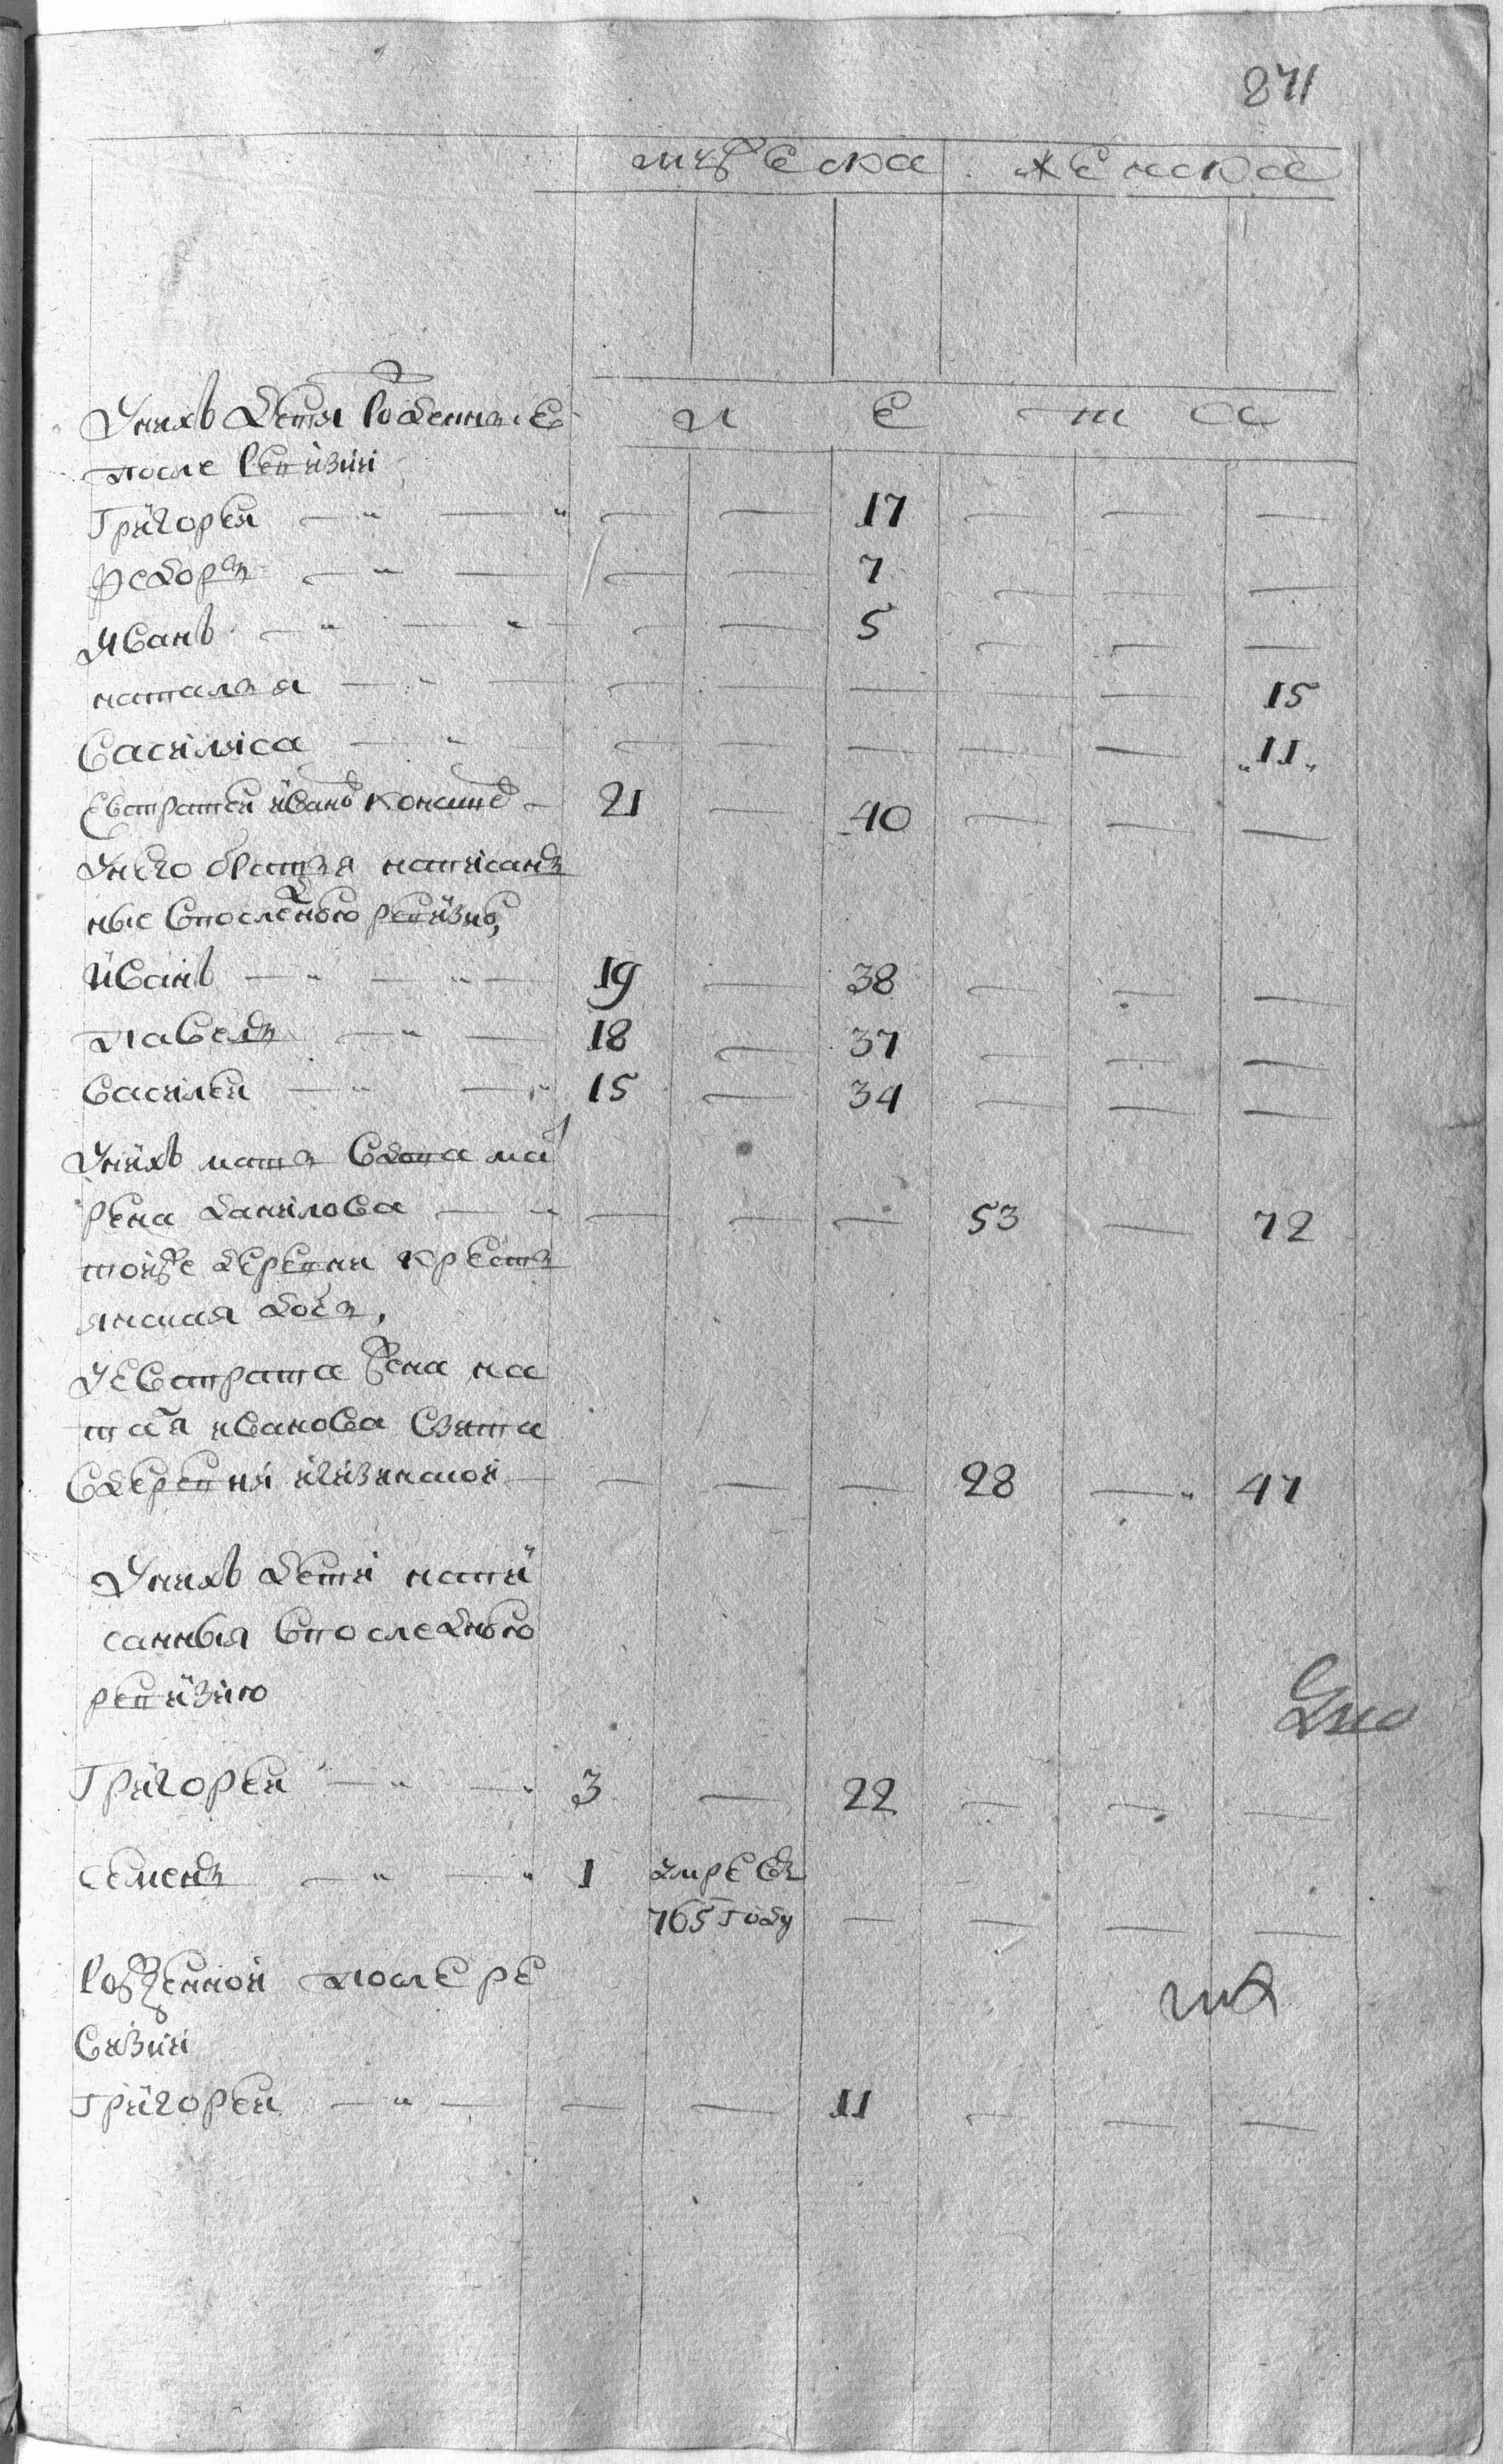 871
мужеска женска
Унихъ дети рожденные л е т а
после ревизии
Григореи — — — — 17 — — —
Федоръ — — — — 7 — — —
Иванъ — — — — 5 — — —
наталья — — — — — — — 15
Василиса — — — — — — — 11
Евстратеи ивановъ 21 — 40 — — —
Унего братья написанъ
ные впоследнюю ревизию,
иванъ — — 19 — 38 — — —
павелъ — — 18 — 37 — — —
василеи — — 15 — 34 — — —
Унихъ мать вдова ма
рена данилова — — — — 53 — 72
тоиже деревни кресть
янская дочь,
Уевстрата жена на
талья иванова взята
в деревни — — — 28 — 47
Унихъ дети напи
санныя впоследнюю
ревизию
Григореи — — 3 — 22 — — —
семенъ — — 1 умре въ
765 году — — — —
Рожденной после ре
визии
Григореи — — — — 11 — — —